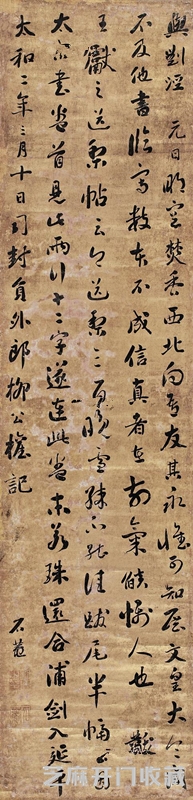 與劉涇 元日明窗焚香西北向吾友其永懷可知展文皇大令閱
不及他書臨寫數本不成信真者在前氣焰懾人也 黻
王獻之送梨帖云今送梨三百晚雪殊不能佳跋尾半幅云因
太宗書卷首見此兩行十二字遂連此卷末若珠還合浦劍入延平
太和二年三月十日司封員外郎柳公權記
石菴
芝麻开门收藏